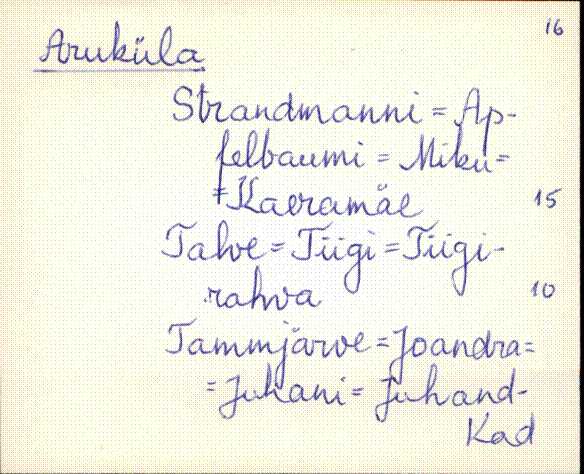 16
Aruküla
Strandmanni = Ap-
felbaumi = Miku =
= Kaeramäe 15
Talve = Tiigi = Tiigi-
rahva 10
Tammjärve = Joandra =
= Juhani = Juhand-
kad